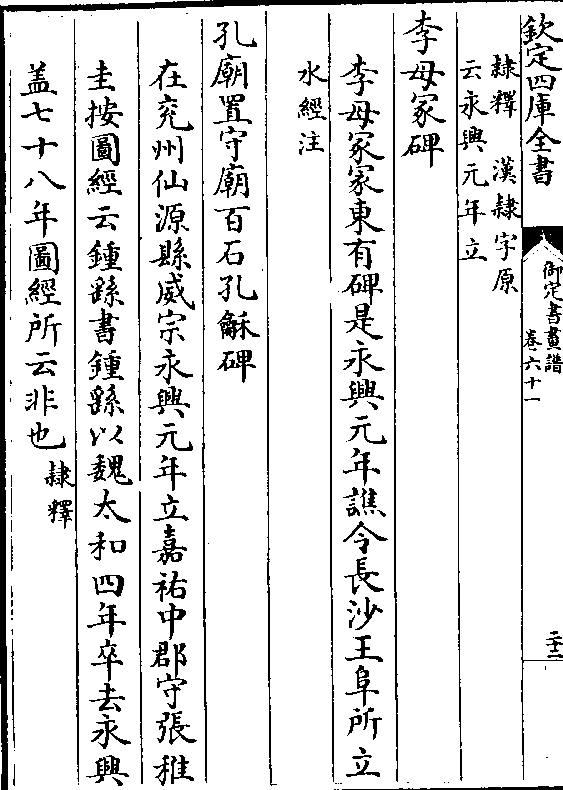 欽定四庫全書
御定書畫譜
卷六十一
二十二
隸釋　漢隸字原
云永興元年立
李母冢碑
李母冢冢東有碑是永興元年譙令長沙王阜所立
水經注
孔廟置守廟百石孔龢碑
在兖州仙源縣威宗永興元年立嘉祐中郡守張稚
圭按圖經云鍾繇書鍾繇以魏太和四年卒去永興
盖七十八年圖經所云非也隸釋